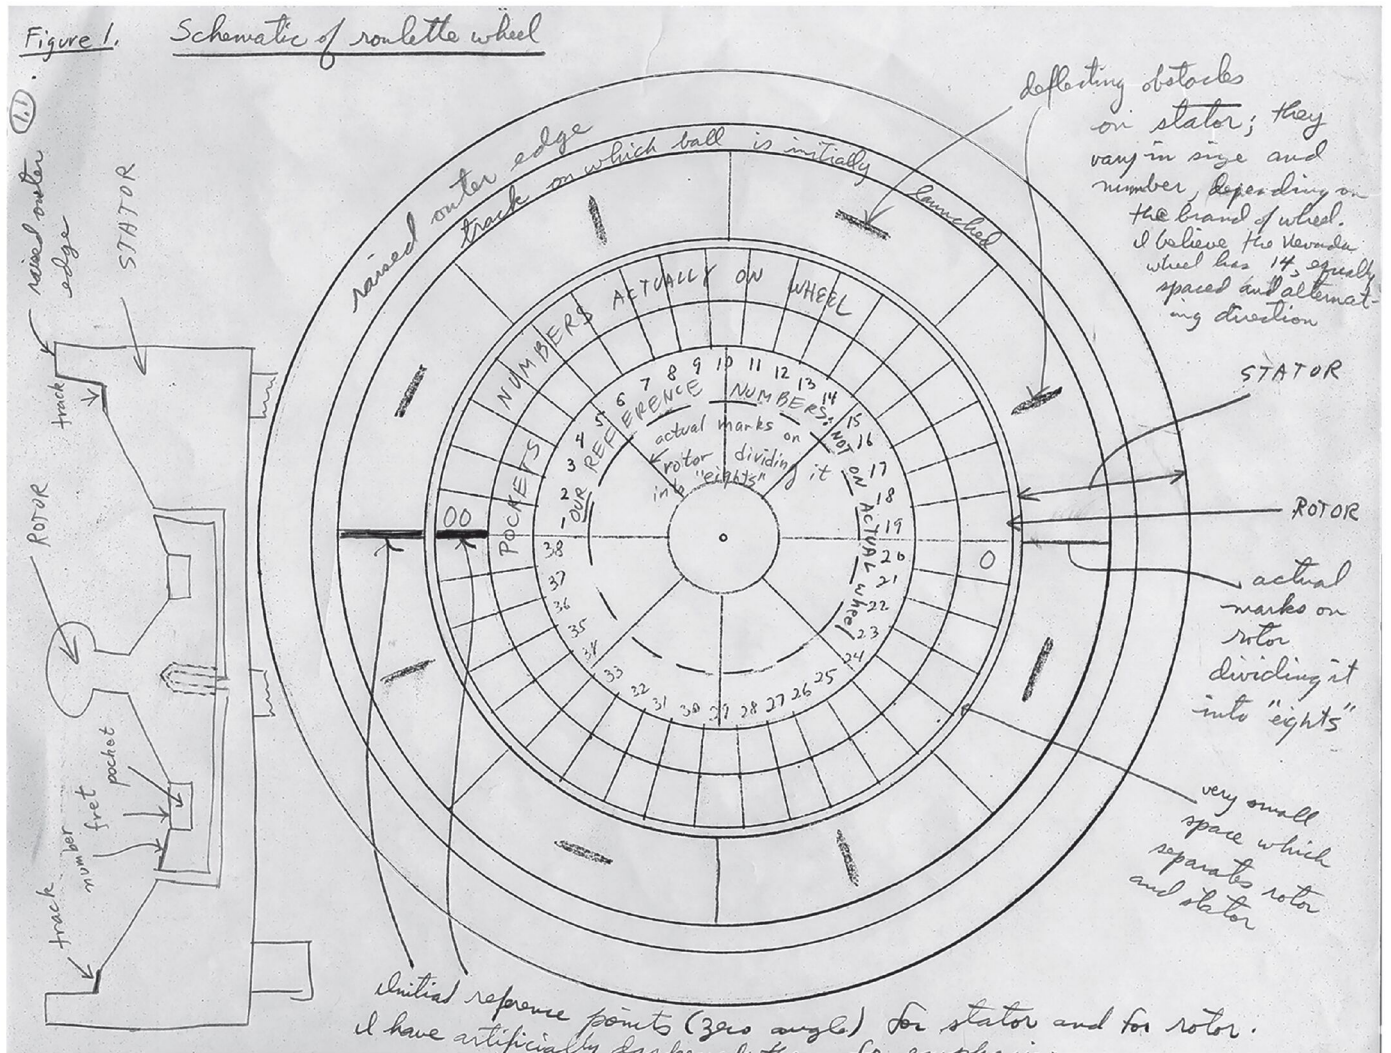 Figure 1. Schematic of roulette wheel
1.1
raised outer
edge
STATOR
track
ROTOR
pocket
fret
number
track
raised outer edge
track on which ball is initially launched
NUMBERS ACTUALLY ON WHEEL
POCKETS
00
0
1 2 3 4 5 6 7 8 9 10 11 12 13 14 15 16 17 18 19 20 21 22 23 24 25 26 27 28 29 30 31 32 33 34 35 36 37 38
OUR REFERENCE NUMBERS: NOT ON ACTUAL wheel
actual marks on
rotor dividing it
into "eights"
deflecting obstacles
on stator; they
vary in size and
number, depending on
the brand of wheel.
I believe the Nevada
wheel has 14, equally
spaced and alternat-
ing direction
STATOR
ROTOR
actual
marks on
rotor
dividing it
into "eights"
very small
space which
separates rotor
and stator
Initial reference points (zero angle) for stator and for rotor.
I have artificially